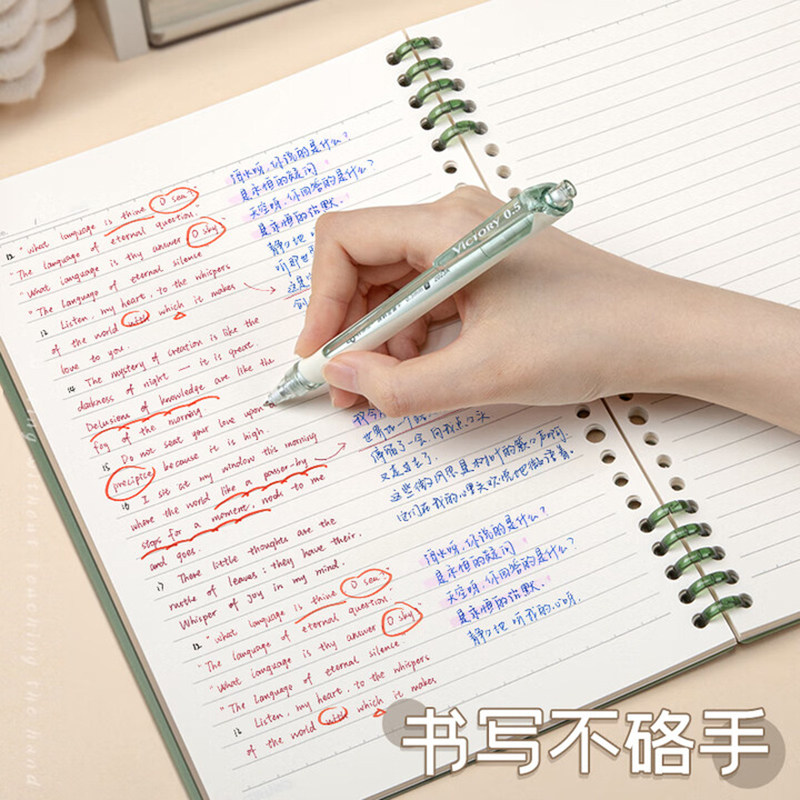 12 "What language is thine O sea?"
"The language of eternal question."
"What language is thy answer O sky
"The Language of eternal silence
13 Listen, my heart, to the whispers
of the world with which it makes
love to you.
14 The mystery of creation is like the
darkness of night — it is great.
Delusions of knowledge are like the
fog of the morning
15 Do not seat your love upon
precipice because it is high.
16 I sit at my window this morning
where the world like a passer-by
stops for a moment, nods to me
and goes.
17 These little thoughts are the
rustle of leaves; they have their,
Whisper of joy in my mind.
12 "What language is thine O sea."
"The language of eternal question.
"What language is thy answer O sky
"The Language of eternal silence
13 Listen, my heart, to the whispers
of the world with which it makes
海水呀,你说的是什么?
是永恒的疑问
天空呀,你回答的是什么?
是永恒的沉默.
静静地
听那世
世界如一个
又走过去了.
这些微风
海水呀,你说的是什么?
是永恒的疑问
天空呀,你回答的是什么?
是永恒的沉默.
静静地 听 我的心呀.
VICTORY 0.5
书写不硌手